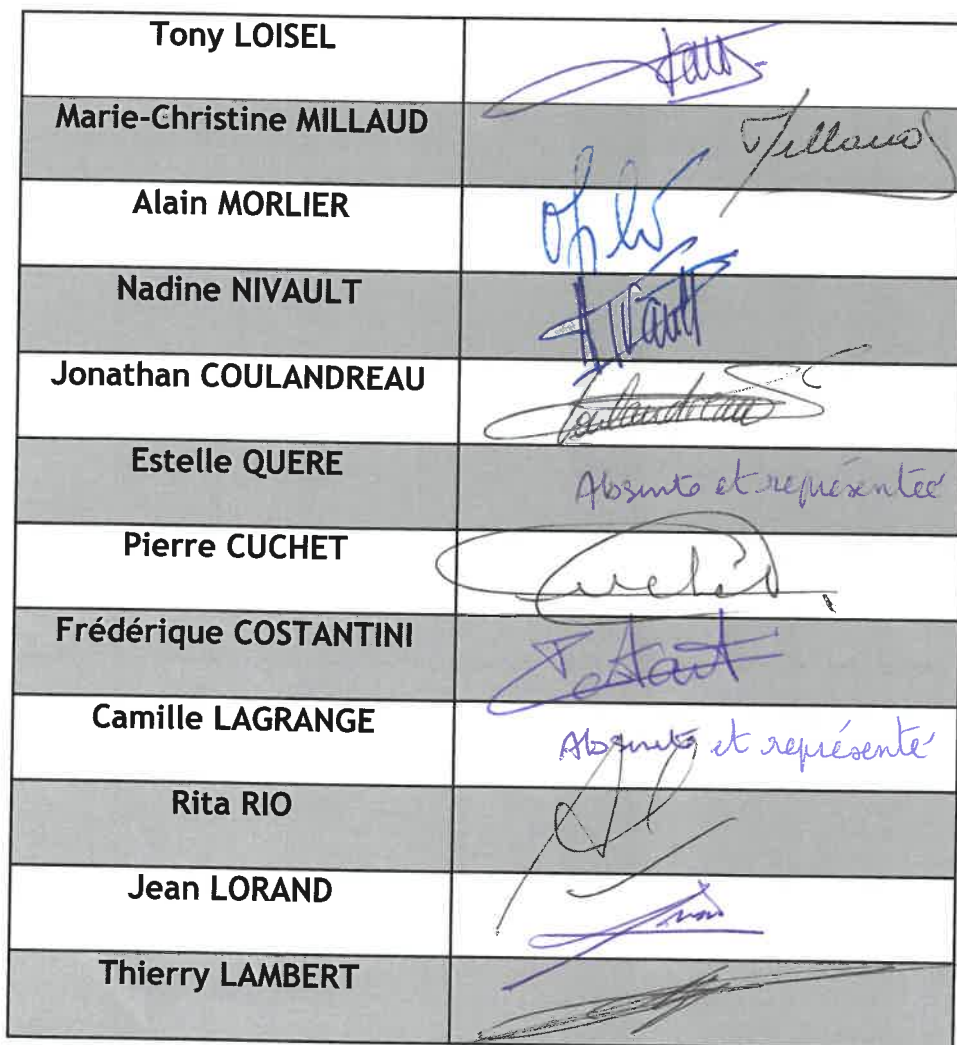 Tony LOISEL
Marie-Christine MILLAUD
Millaud
Alain MORLIER
Nadine NIVAULT
Nivault
Jonathan COULANDREAU
Coulandreau
Estelle QUERE
Absente et représentée
Pierre CUCHET
Cuchet
Frédérique COSTANTINI
Camille LAGRANGE
Absente et représenté
Rita RIO
Jean LORAND
Thierry LAMBERT